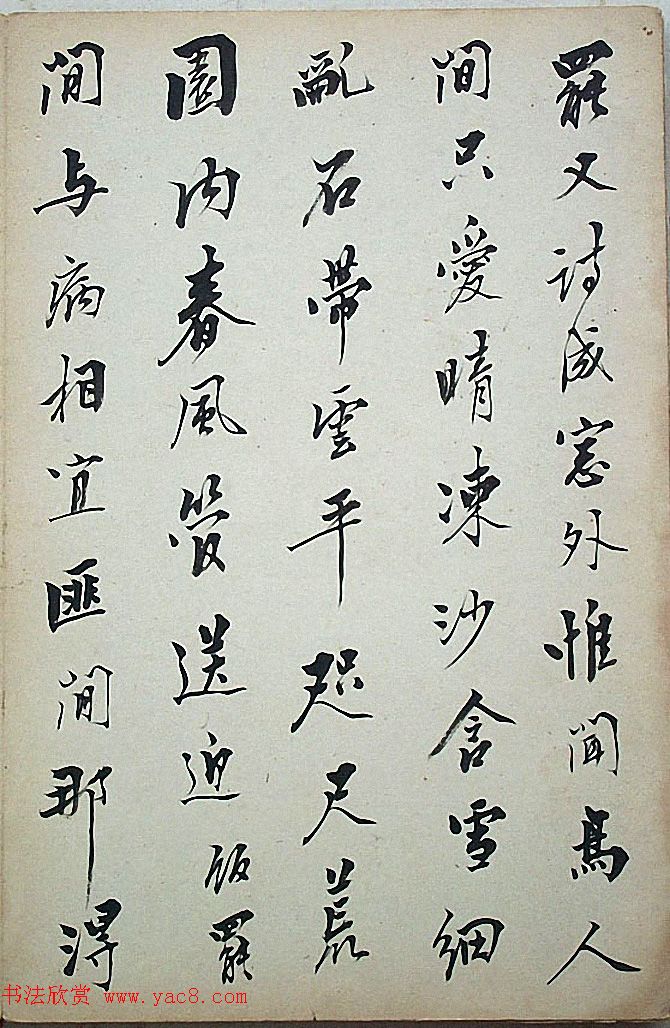 罷文詩成窓外惟聞鳥人
間只愛晴凍沙含雪細
亂石帶雲平咫尺荒
園內春風管送迎飯罷
閒与病相宜匪閒那得
书法欣赏 www.yac8.com